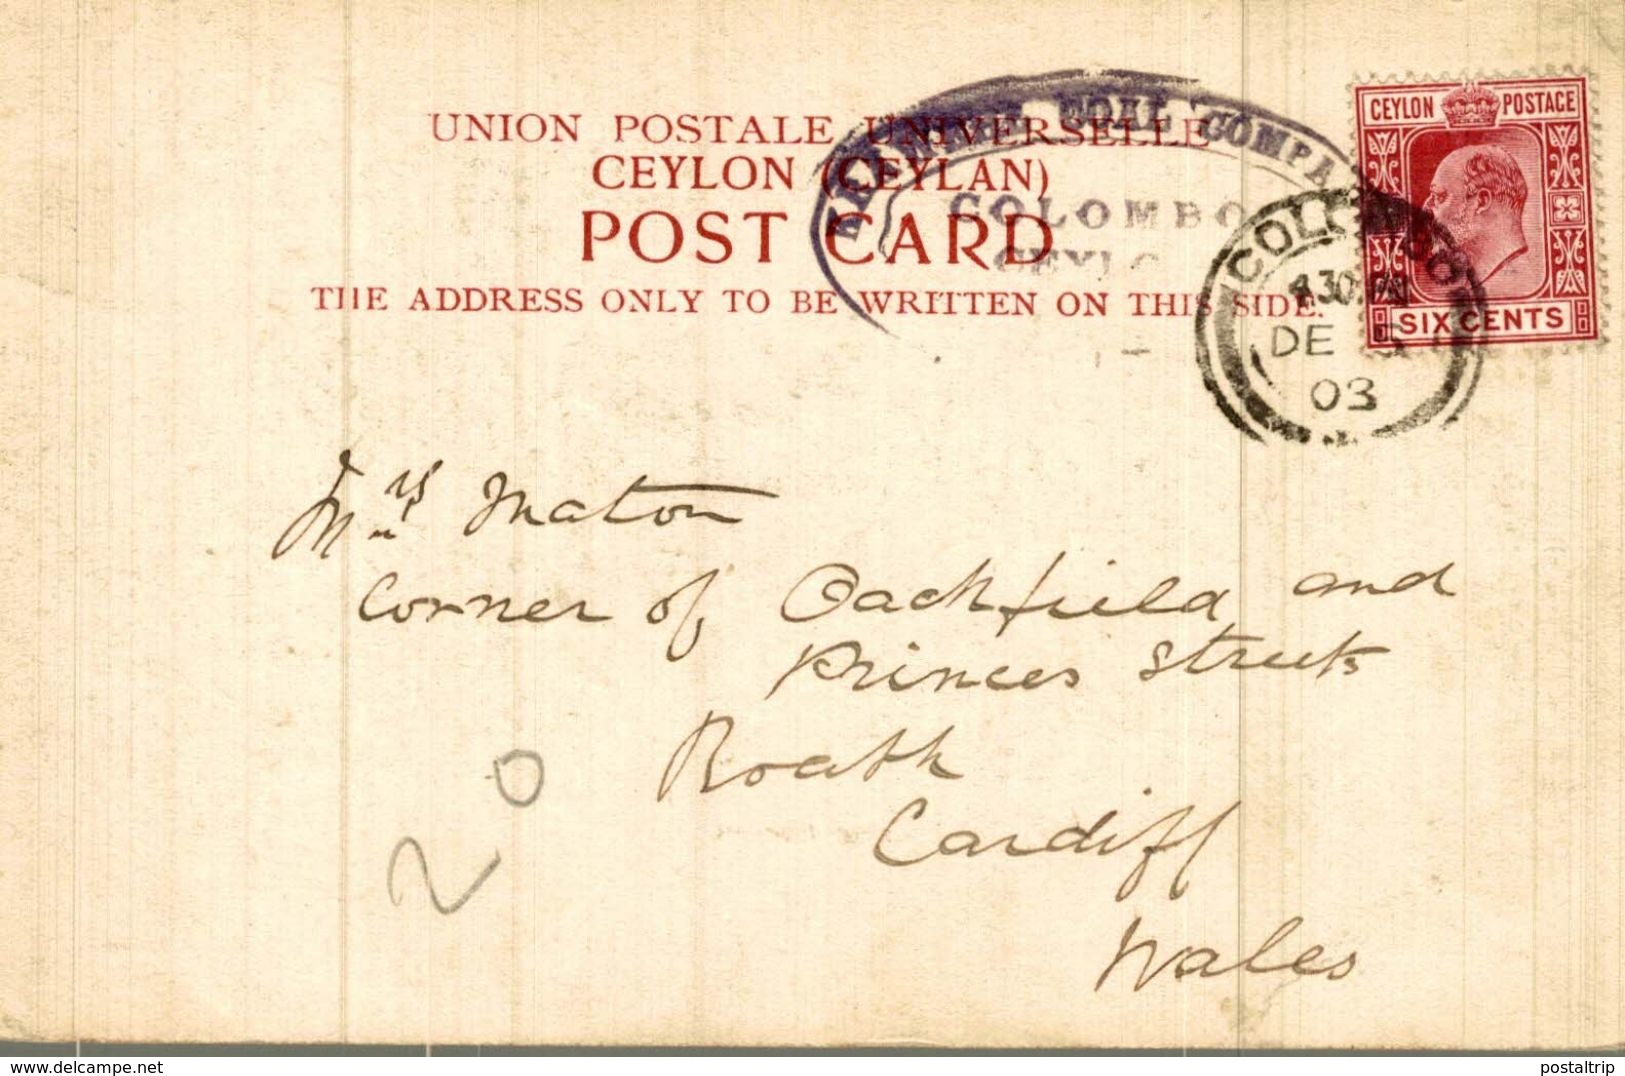 UNION POSTALE UNIVERSELLE
CEYLON (CEYLAN)
POST CARD
THE ADDRESS ONLY TO BE WRITTEN ON THIS SIDE.
COAL COMPA
COLOMBO
CEYLO
CEYLON POSTAGE
SIX CENTS
COLOMBO
4.30 PM
DE
03
Mrs Maton
Corner of Oackfield and
Princes Streets
Roath
Cardiff
Wales
20
www.delcampe.net
postaltrip